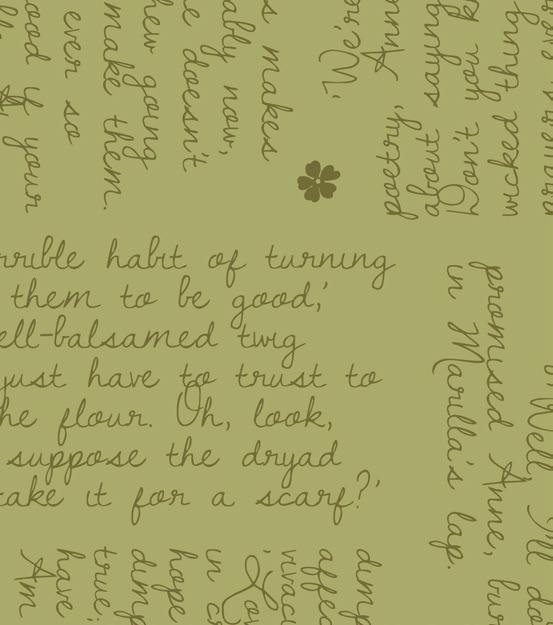 s makes
ably now,
e doesn't
hew going
make them.
ever so
ood if your
'We're
poetry,' Anne
about saying
Don't you
wicked thing
rrible habit of turning
them to be good,'
ell-balsamed twig
just have to trust to
he flour. Oh, look,
suppose the dryad
take it for a scarf?'
'Well, I'll do
promised Anne, bu
in Marilla's lap.
dimp
affec
'vivac
in cr
hope
dimp
true;
have
Am